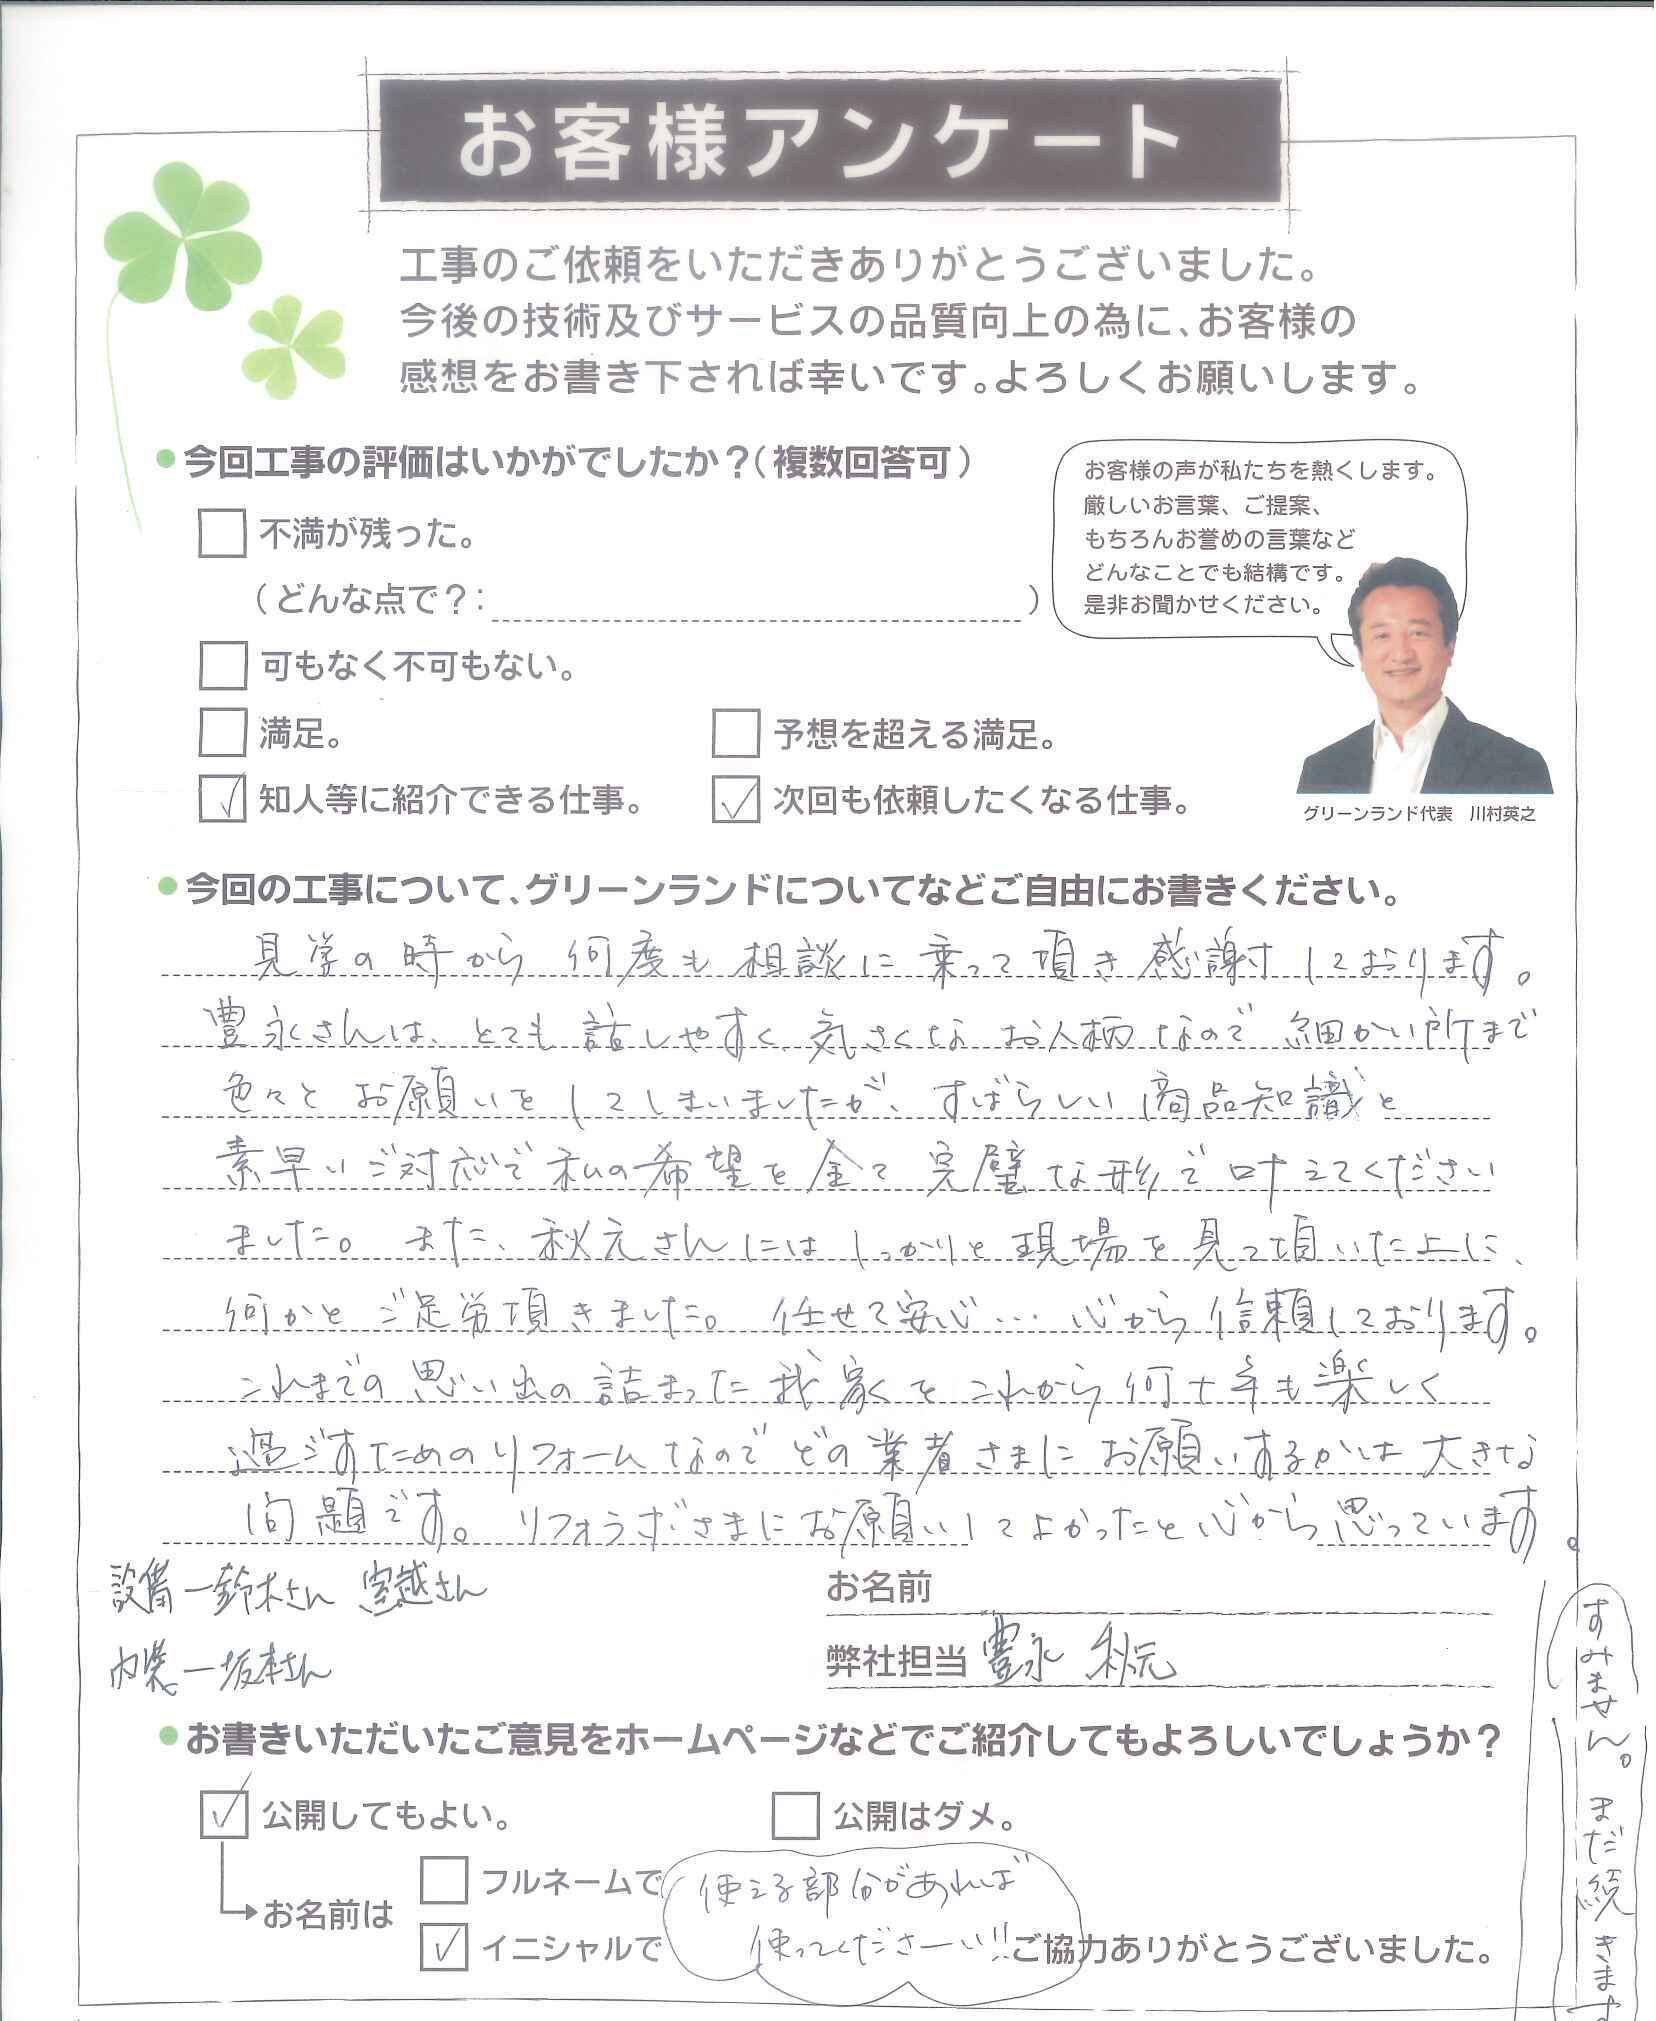 お客様アンケート
工事のご依頼をいただきありがとうございました。
今後の技術及びサービスの品質向上の為に、お客様の
感想をお書き下されば幸いです。よろしくお願いします。
●今回工事の評価はいかがでしたか？（複数回答可）
不満が残った。
（どんな点で？：　）
可もなく不可もない。
満足。
予想を超える満足。
知人等に紹介できる仕事。
次回も依頼したくなる仕事。
お客様の声が私たちを熱くします。
厳しいお言葉、ご提案、
もちろんお誉めの言葉など
どんなことでも結構です。
是非お聞かせください。
グリーンランド代表　川村英之
●今回の工事について、グリーンランドについてなどご自由にお書きください。
見学の時から 何度も 相談に 乗って頂き 感謝しております。
豊永さんは、とても 話しやすく、気さくな お人柄なので 細かい所まで
色々と お願いを してしまいましたが、すばらしい 商品知識と
素早いご対応で 私の希望を全て 完璧な形で 叶えてください
ました。また、秋元さんには しっかりと 現場を見て頂いた上に、
何かと ご足労頂きました。任せて安心… 心から 信頼しております。
これまでの 思い出の 詰まった 我家を これから 何十年も 楽しく
過ごすための リフォームなので どの業者さまに お願いするかは 大きな
問題です。リフォラボさまに お願いして よかったと 心から 思っています。
設備ー鈴木さん 室越さん
内装ー坂本さん
お名前
弊社担当 豊永 秋元
すみません。まだ続きます
●お書きいただいたご意見をホームページなどでご紹介してもよろしいでしょうか？
公開してもよい。
公開はダメ。
お名前は
フルネームで
イニシャルで
使える部分があれば
使ってくださーい!!
ご協力ありがとうございました。